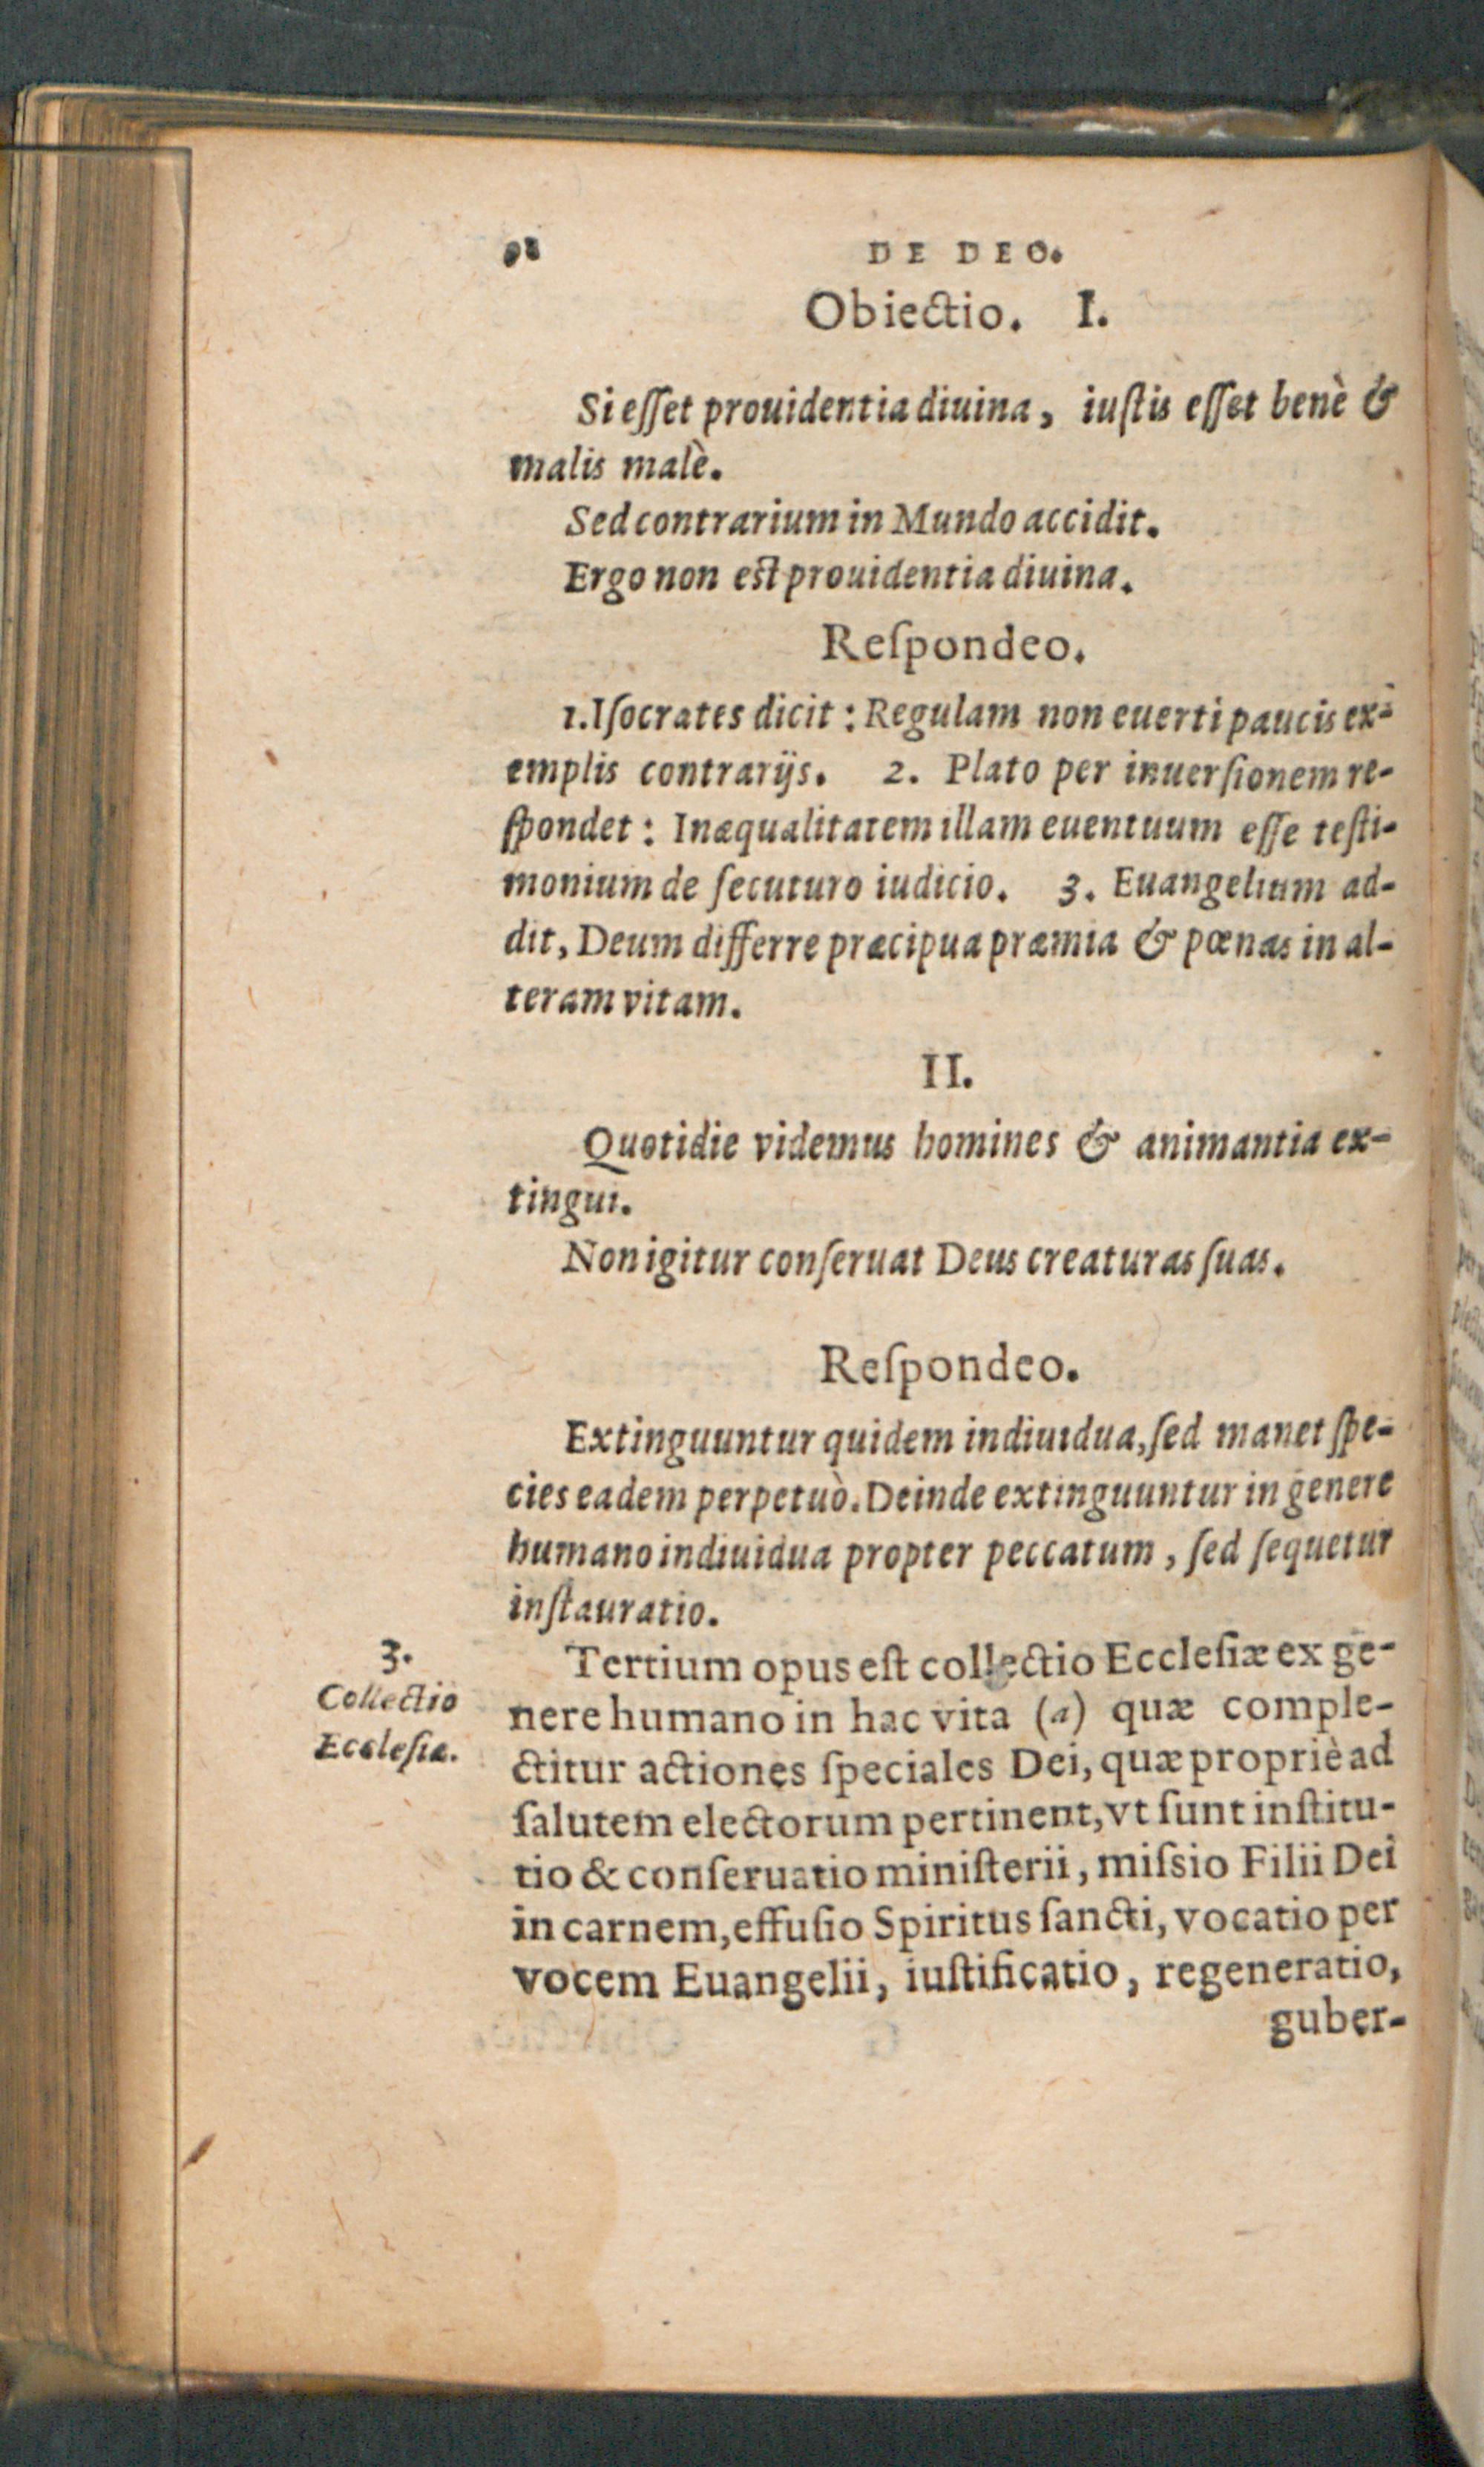 DE DEO.
Obiectio. I.
Si esſet prouidentia diuina, iuſtis esſet benè &
malis malè.
Sed contrarium in Mundo accidit.
Ergo non eſt prouidentia diuina.
Reſpondeo.
1. Iſocrates dicit: Regulam non euerti paucis ex-
emplis contrarijs. 2. Plato per inuerſionem re-
ſpondet: Inæqualitatem illam euentuum eſſe teſti-
monium de ſecuturo iudicio. 3. Euangelium ad-
dit, Deum differre præcipua præmia & pœnas in al-
teram vitam.
II.
Quotidie videmus homines & animantia ex-
tingui.
Non igitur conſeruat Deus creaturas ſuas.
Reſpondeo.
Extinguuntur quidem indiuidua, ſed manet ſpe-
cies eadem perpetuò. Deinde extinguuntur in genere
humano indiuidua propter peccatum, ſed ſequetur
inſtauratio.
3.
Collectio
Eccleſiæ.
Tertium opus eſt collectio Eccleſiæ ex ge-
nere humano in hac vita (a) quæ comple-
ctitur actiones ſpeciales Dei, quæ propriè ad
ſalutem electorum pertinent, vt ſunt inſtitu-
tio & conſeruatio miniſterii, miſsio Filii Dei
in carnem, effuſio Spiritus ſancti, vocatio per
vocem Euangelii, iuſtificatio, regeneratio,
guber-